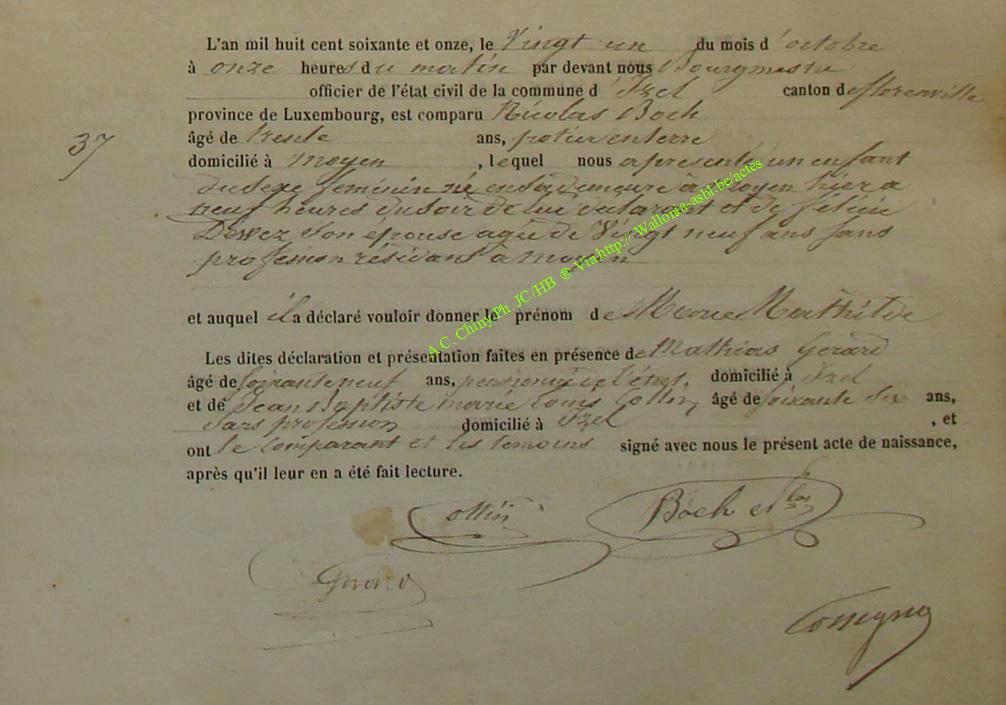 L'an mil huit cent soixante et onze, le Vingt un du mois d'octobre
à onze heures du matin par devant nous Bourgmestre
officier de l'état civil de la commune d'Izel canton de florenville
province de Luxembourg, est comparu Nicolas Boch
37
âgé de trente ans, potier en terre
domicilié à moyen, lequel nous a présenté un enfant
du sexe féminin né en sa demeure à moyen hier a
neuf heures du soir de lui déclarant et de félicie
Dewez son epouse agée de Vingt neuf ans sans
profession résidant a moyen
et auquel il a déclaré vouloir donner le prénom de Marie Mathilde
Les dites déclaration et présentation faites en présence de Mathias Gerard
âgé de soixante neuf ans, pensionné de l'état, domicilié à Izel
et de Jean Baptiste marie Louis Collin âgé de soixante six ans,
sans profession domicilié à Izel, et
ont le comparant et les temoins signé avec nous le présent acte de naissance,
après qu'il leur en a été fait lecture.
Collin Boch
Gerard
A.C. Chiny Ph JC/HB ® Via http://Wallonia-asbl.be/actes